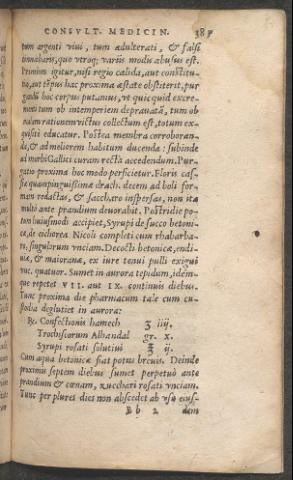 CONSVLT. MEDICIN. 38
tum argenti viui, tum adulterati, & falsi
innabaris, quo vtroq; variis modis abusus est.
Primùm igitur, nisi regio calida, aut constitu-
tio, aut tēpus hac proxima æstate obstiterit, pur
gandū hoc corpus putamus, vt quicquid excre-
menti tum ob intemperiem deprauatā, tum ob
malam rationem victus collectum est, totum ex-
quisitè educatur. Postea membra corroboran-
da, & ad meliorem habitum ducenda: subinde
ad morbi Gallici curam rectà accedendum. Pur-
gatio proxima hoc modo perficietur. Floris cas-
siæ quampinguissimæ drach. decem ad boli for-
mam redactas, & sacchro inspersas, non ita
multò ante prandium deuorabit. Postridie po-
tum huiusmodi accipiet, Syrupi de succo betoni-
cæ, de cichorea Nicoli completi cum rhabarba-
ro, singulorum vnciam. Decocti betonicæ, endi-
uiæ, & maioranæ, ex iure tenui pulli exigui
vnc. quatuor. Sumet in aurora tepidum, idém-
que repetet VII. aut IX. continuis diebus.
Tunc proxima die pharmacum tale cum cu-
stodia deglutiet in aurora:
℞. Confectionis hamech ʒ iiij.
Trochiscorum Alhandal gr. x.
Syrupi rosati solutiui ℥ ij.
Cum aqua betonicæ fiat potus breuis. Deinde
proximis septem diebus sumet perpetuò ante
prandium & cœnam, zucchari rosati vnciam.
Tunc per plures dies non abscedet ab vsu eius-
Bb 2 dem